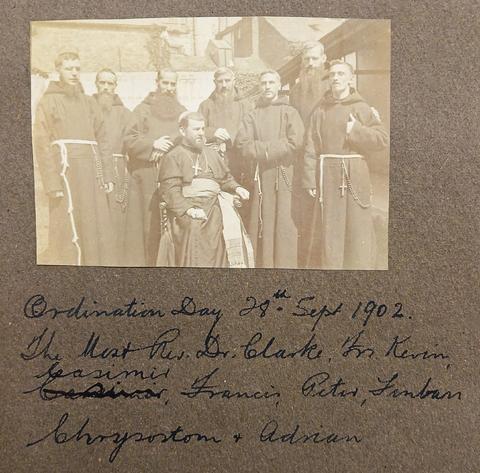 Ordination Day 28th Sept 1902.
The Most Rev. Dr. Clarke, Frs. Kevin,
Casimir
Casimor, Francis, Peter, Finbarr
Chrysostom + Adrian